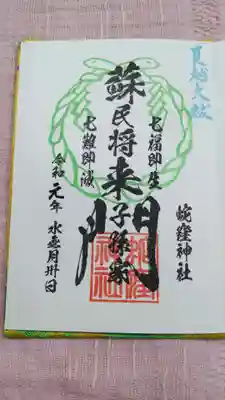 夏越大祓
蛇窪神社
七福即生
蘇民将来子孫家門
七難即滅
令和元年水無月卅日
蛇窪神社